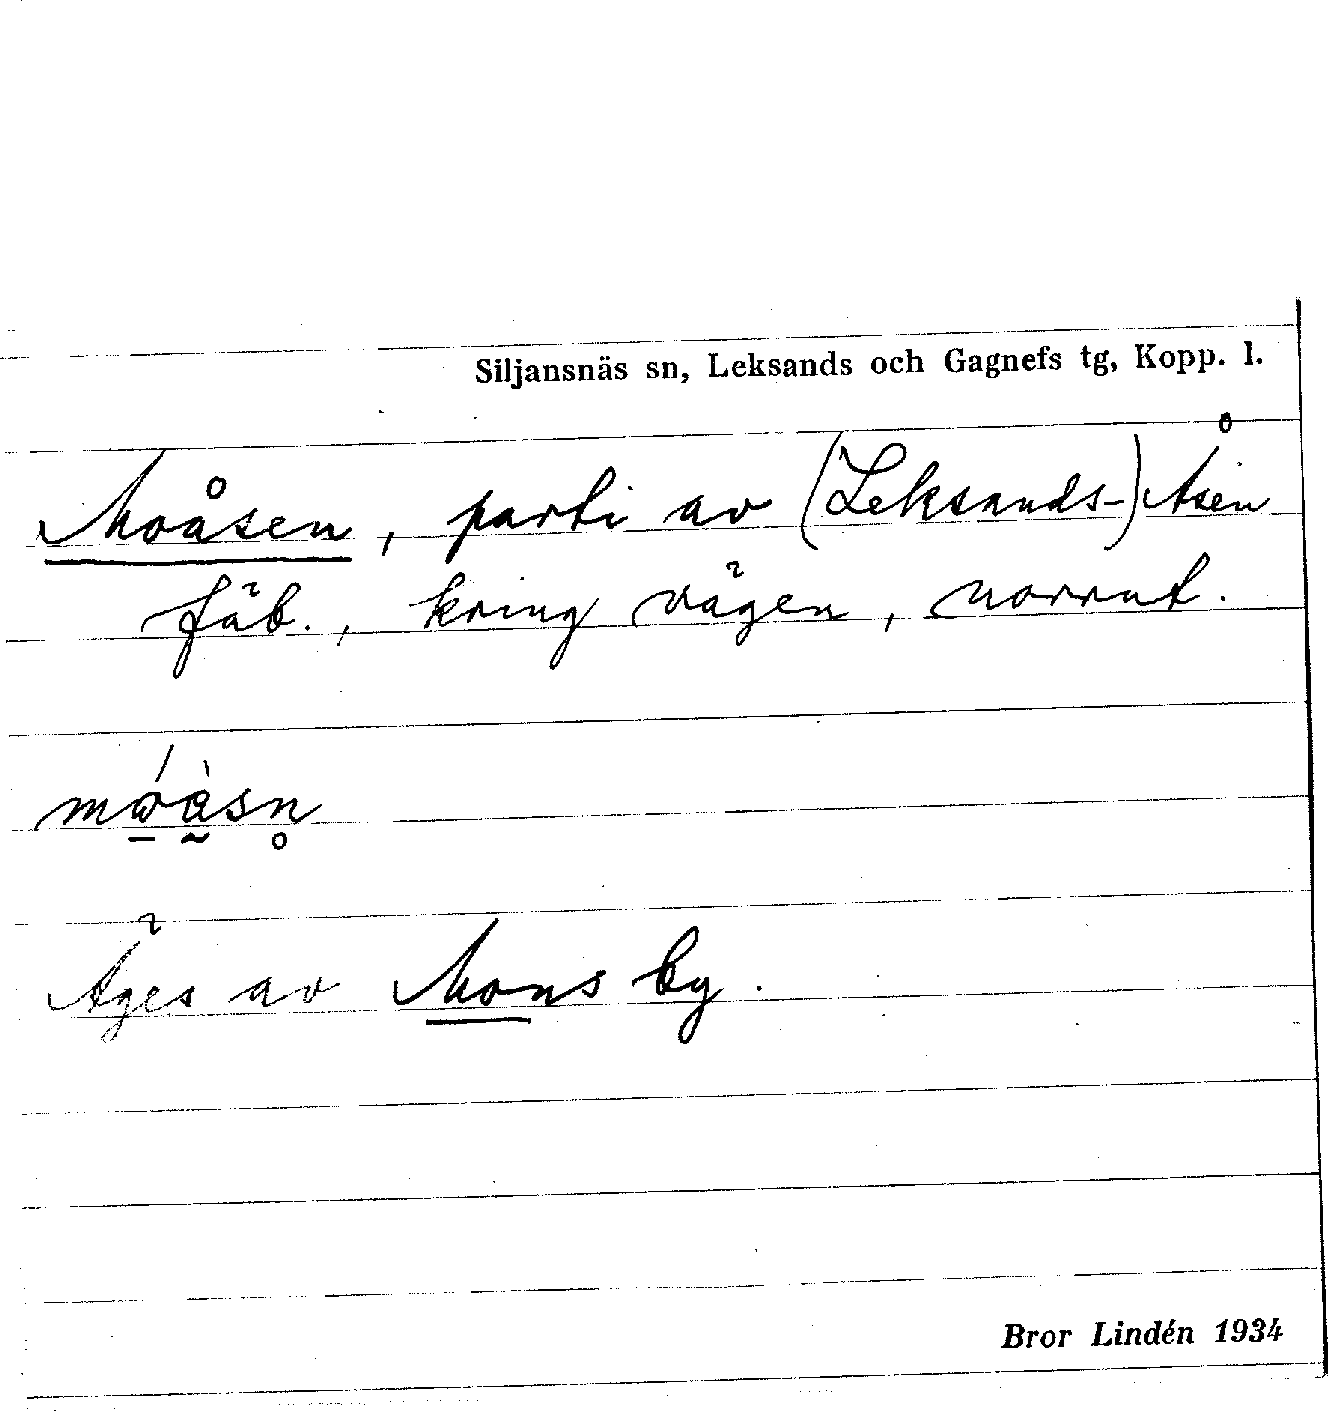 Siljansnäs sn, Leksands och Gagnefs tg, Kopp. l.
Moåsen, parti av (Leksands-)Åsen
fäb., kring vägen, norrut.
Äges av Mons by.
Bror Lindén 1934